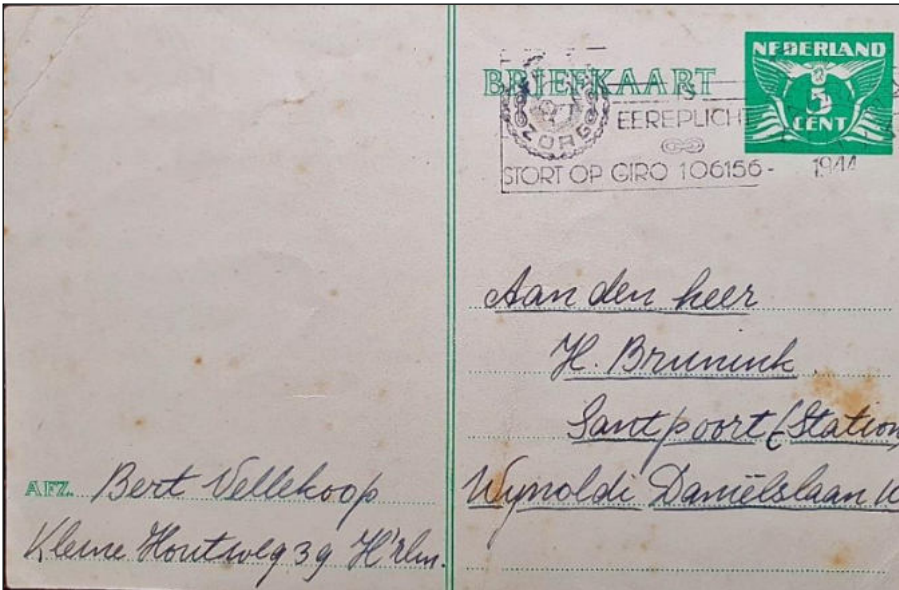 BRIEFKAART
NEDERLAND
5
CENT
ZORG
EEREPLICHT
STORT OP GIRO 106156-
1944
Aan den heer
H. Brunink
Santpoort (Station)
Wynoldi Daniëlslaan
AFZ. Bert Vellekoop
Kleine Houtweg 39 H'rlm.